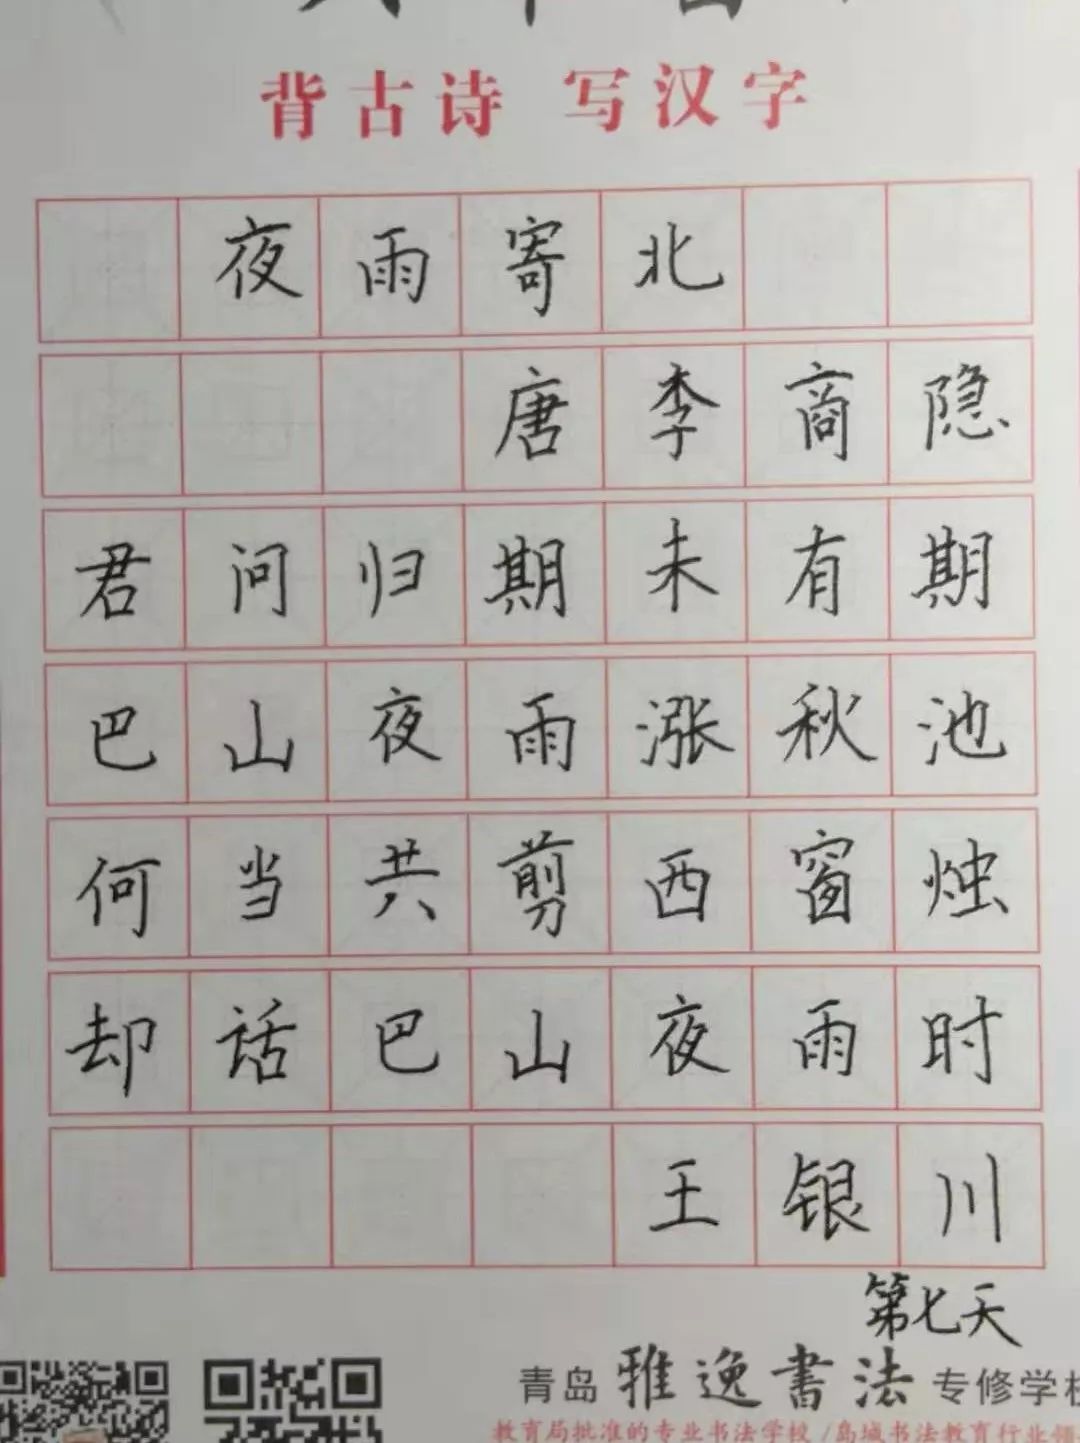 背古诗 写汉字
夜雨寄北
唐李商隐
君问归期未有期
巴山夜雨涨秋池
何当共剪西窗烛
却话巴山夜雨时
王银川
第七天
青岛雅逸書法专修学校
教育局批准的专业书法学校/岛城书法教育行业领